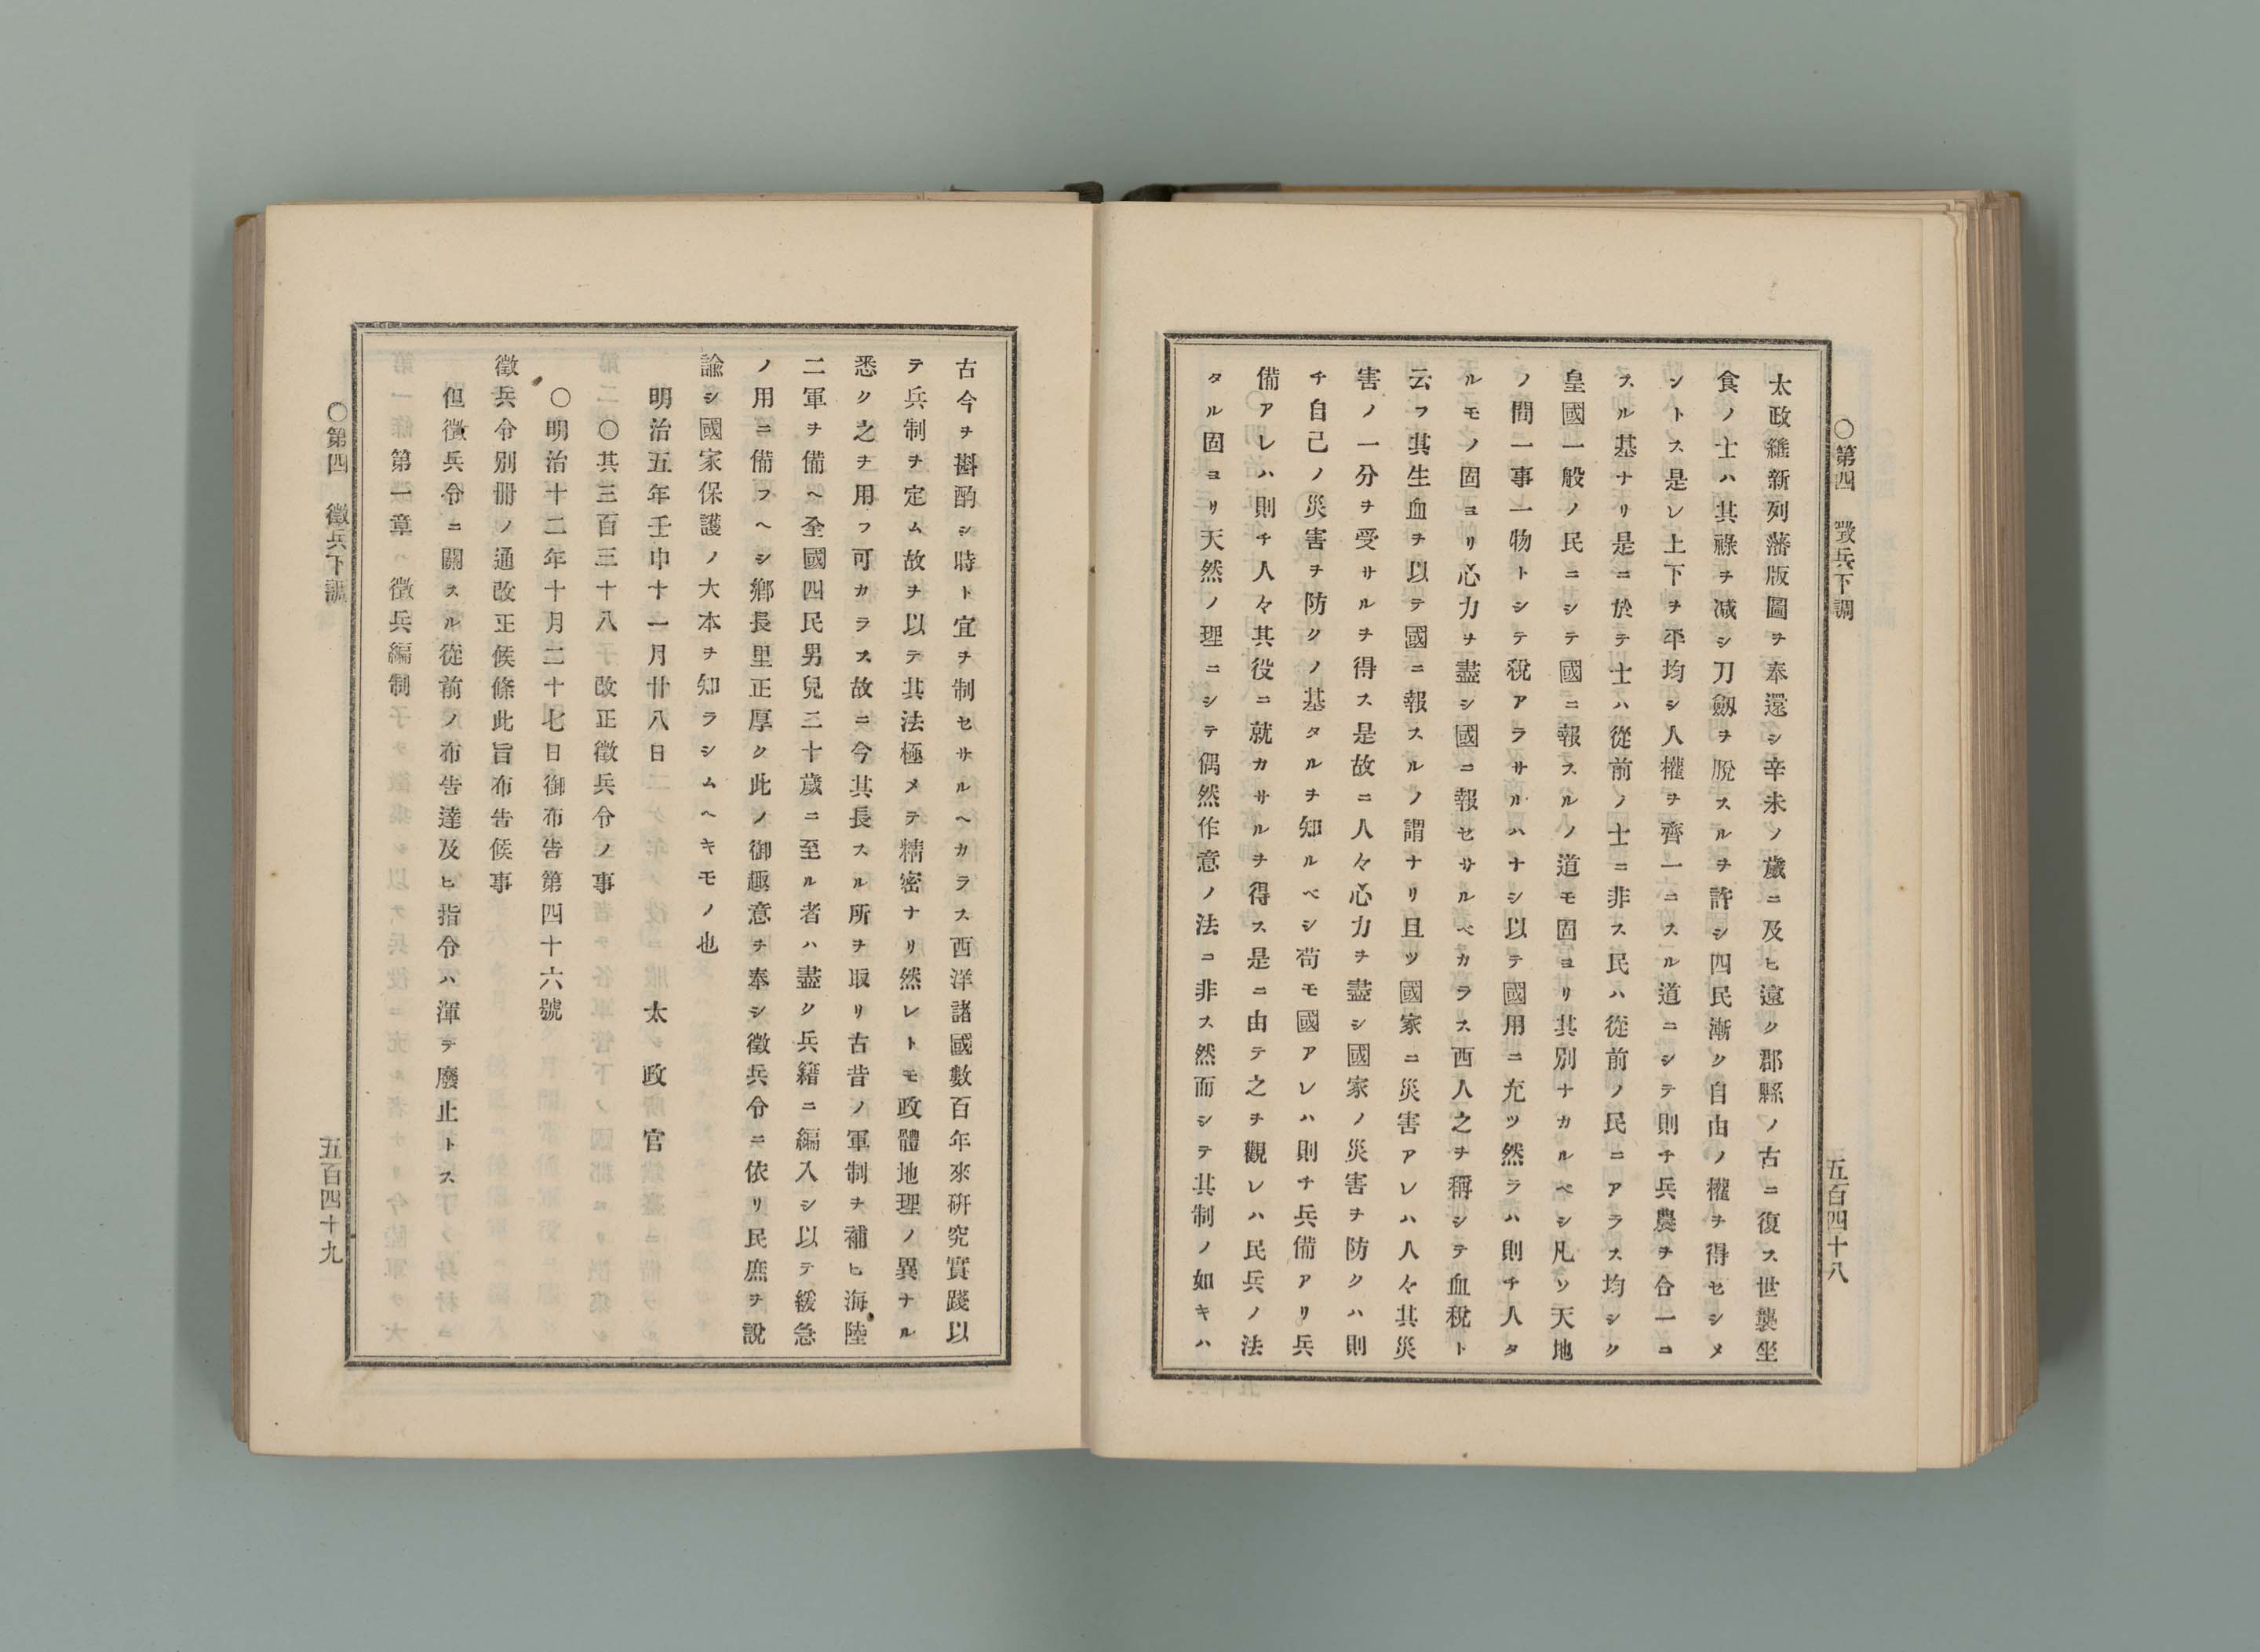 ○第四　徵兵下調
五百四十八
太政維新列藩版圖ヲ奉還シ辛未ノ歲ニ及ヒ遠ク郡縣ノ古ニ復ス世襲坐
食ノ士ハ其祿ヲ减シ刀劔ヲ脫スルヲ許シ四民漸ク自由ノ權ヲ得セシメ
ントス是レ上下ヲ平均シ人權ヲ齊一ニスル道ニシテ則チ兵農ヲ合一ニ
スル基ナリ是ニ於テ士ハ從前ノ士ニ非ス民ハ從前ノ民ニアラス均シク
皇國一般ノ民ニシテ國ニ報スルノ道モ固ヨリ其別ナカルベシ凡ソ天地
ノ間一事一物トシテ稅アラサルハナシ以テ國用ニ充ツ然ラハ則チ人タ
ルモノ固ヨリ心力ヲ盡シ國ニ報セサルベカラス西人之ヲ稱シテ血稅ト
云フ其生血ヲ以テ國ニ報スルノ謂ナリ且ツ國家ニ災害アレハ人々其災
害ノ一分ヲ受サルヲ得ス是故ニ人々心力ヲ盡シ國家ノ災害ヲ防クハ則
チ自己ノ災害ヲ防クノ基タルヲ知ルベシ苟モ國アレハ則チ兵備アリ兵
備アレハ則チ人々其役ニ就カサルヲ得ス是ニ由テ之ヲ觀レハ民兵ノ法
タル固ヨリ天然ノ理ニシテ偶然作意ノ法ニ非ス然而シテ其制ノ如キハ
古今ヲ斟酌シ時ト宜ヲ制セサルヘカラス西洋諸國數百年來硏究實踐以
テ兵制ヲ定ム故ヲ以テ其法極メテ精密ナリ然レトモ政體地理ノ異ナル
悉ク之ヲ用フ可カラス故ニ今其長スル所ヲ取リ古昔ノ軍制ヲ補ヒ海陸
二軍ヲ備ヘ全國四民男兒二十歲ニ至ル者ハ盡ク兵籍ニ編入シ以テ緩急
ノ用ニ備フヘシ鄕長里正厚ク此ノ御趣意ヲ奉シ徵兵令ニ依リ民庶ヲ說
諭シ國家保護ノ大本ヲ知ラシムヘキモノ也
明治五年壬申十一月廿八日　太政官
○其三百三十八　改正徵兵令ノ事
○明治十二年十月二十七日御布告第四十六號
徵兵令別冊ノ通改正候條此旨布告候事
但徵兵令ニ關スル從前ノ布告達及ヒ指令ハ渾テ廢止トス
第一章　徵兵編制
○第四　徵兵下調
五百四十九